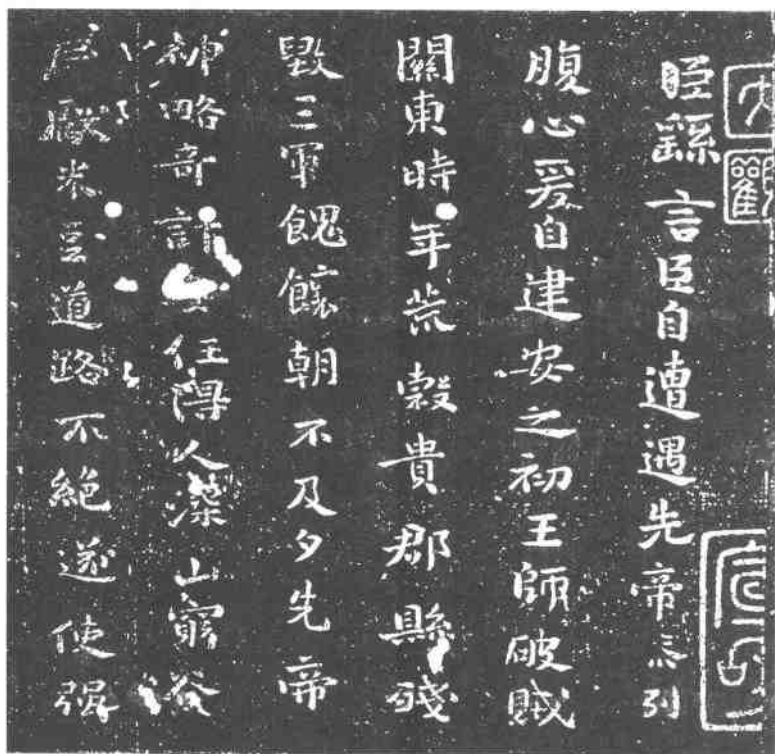 臣繇言臣自遭遇先帝忝列
腹心爰自建安之初王師破賊
關東時年荒穀貴郡縣殘
毀三軍餽饟朝不及夕先帝
神略奇計任得人深山窮谷
民獻米豆道路不絕遂使強